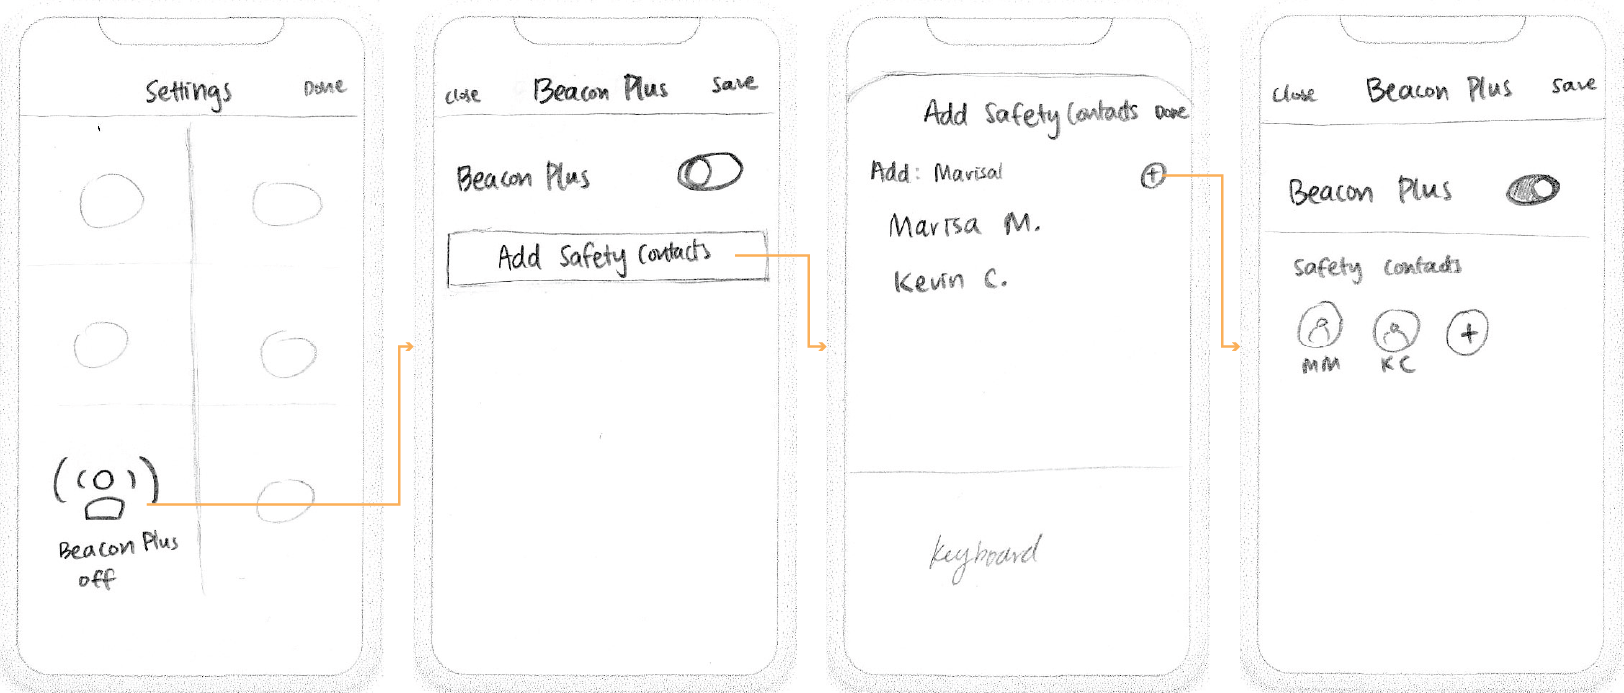 Settings Done
Beacon Plus
off
Close Beacon Plus Save
Beacon Plus
Add Safety Contacts
Add Safety Contacts Done
Add: Marisa|
+
Marisa M.
Kevin C.
keyboard
Close Beacon Plus Save
Beacon Plus
Safety Contacts
+
MM KC